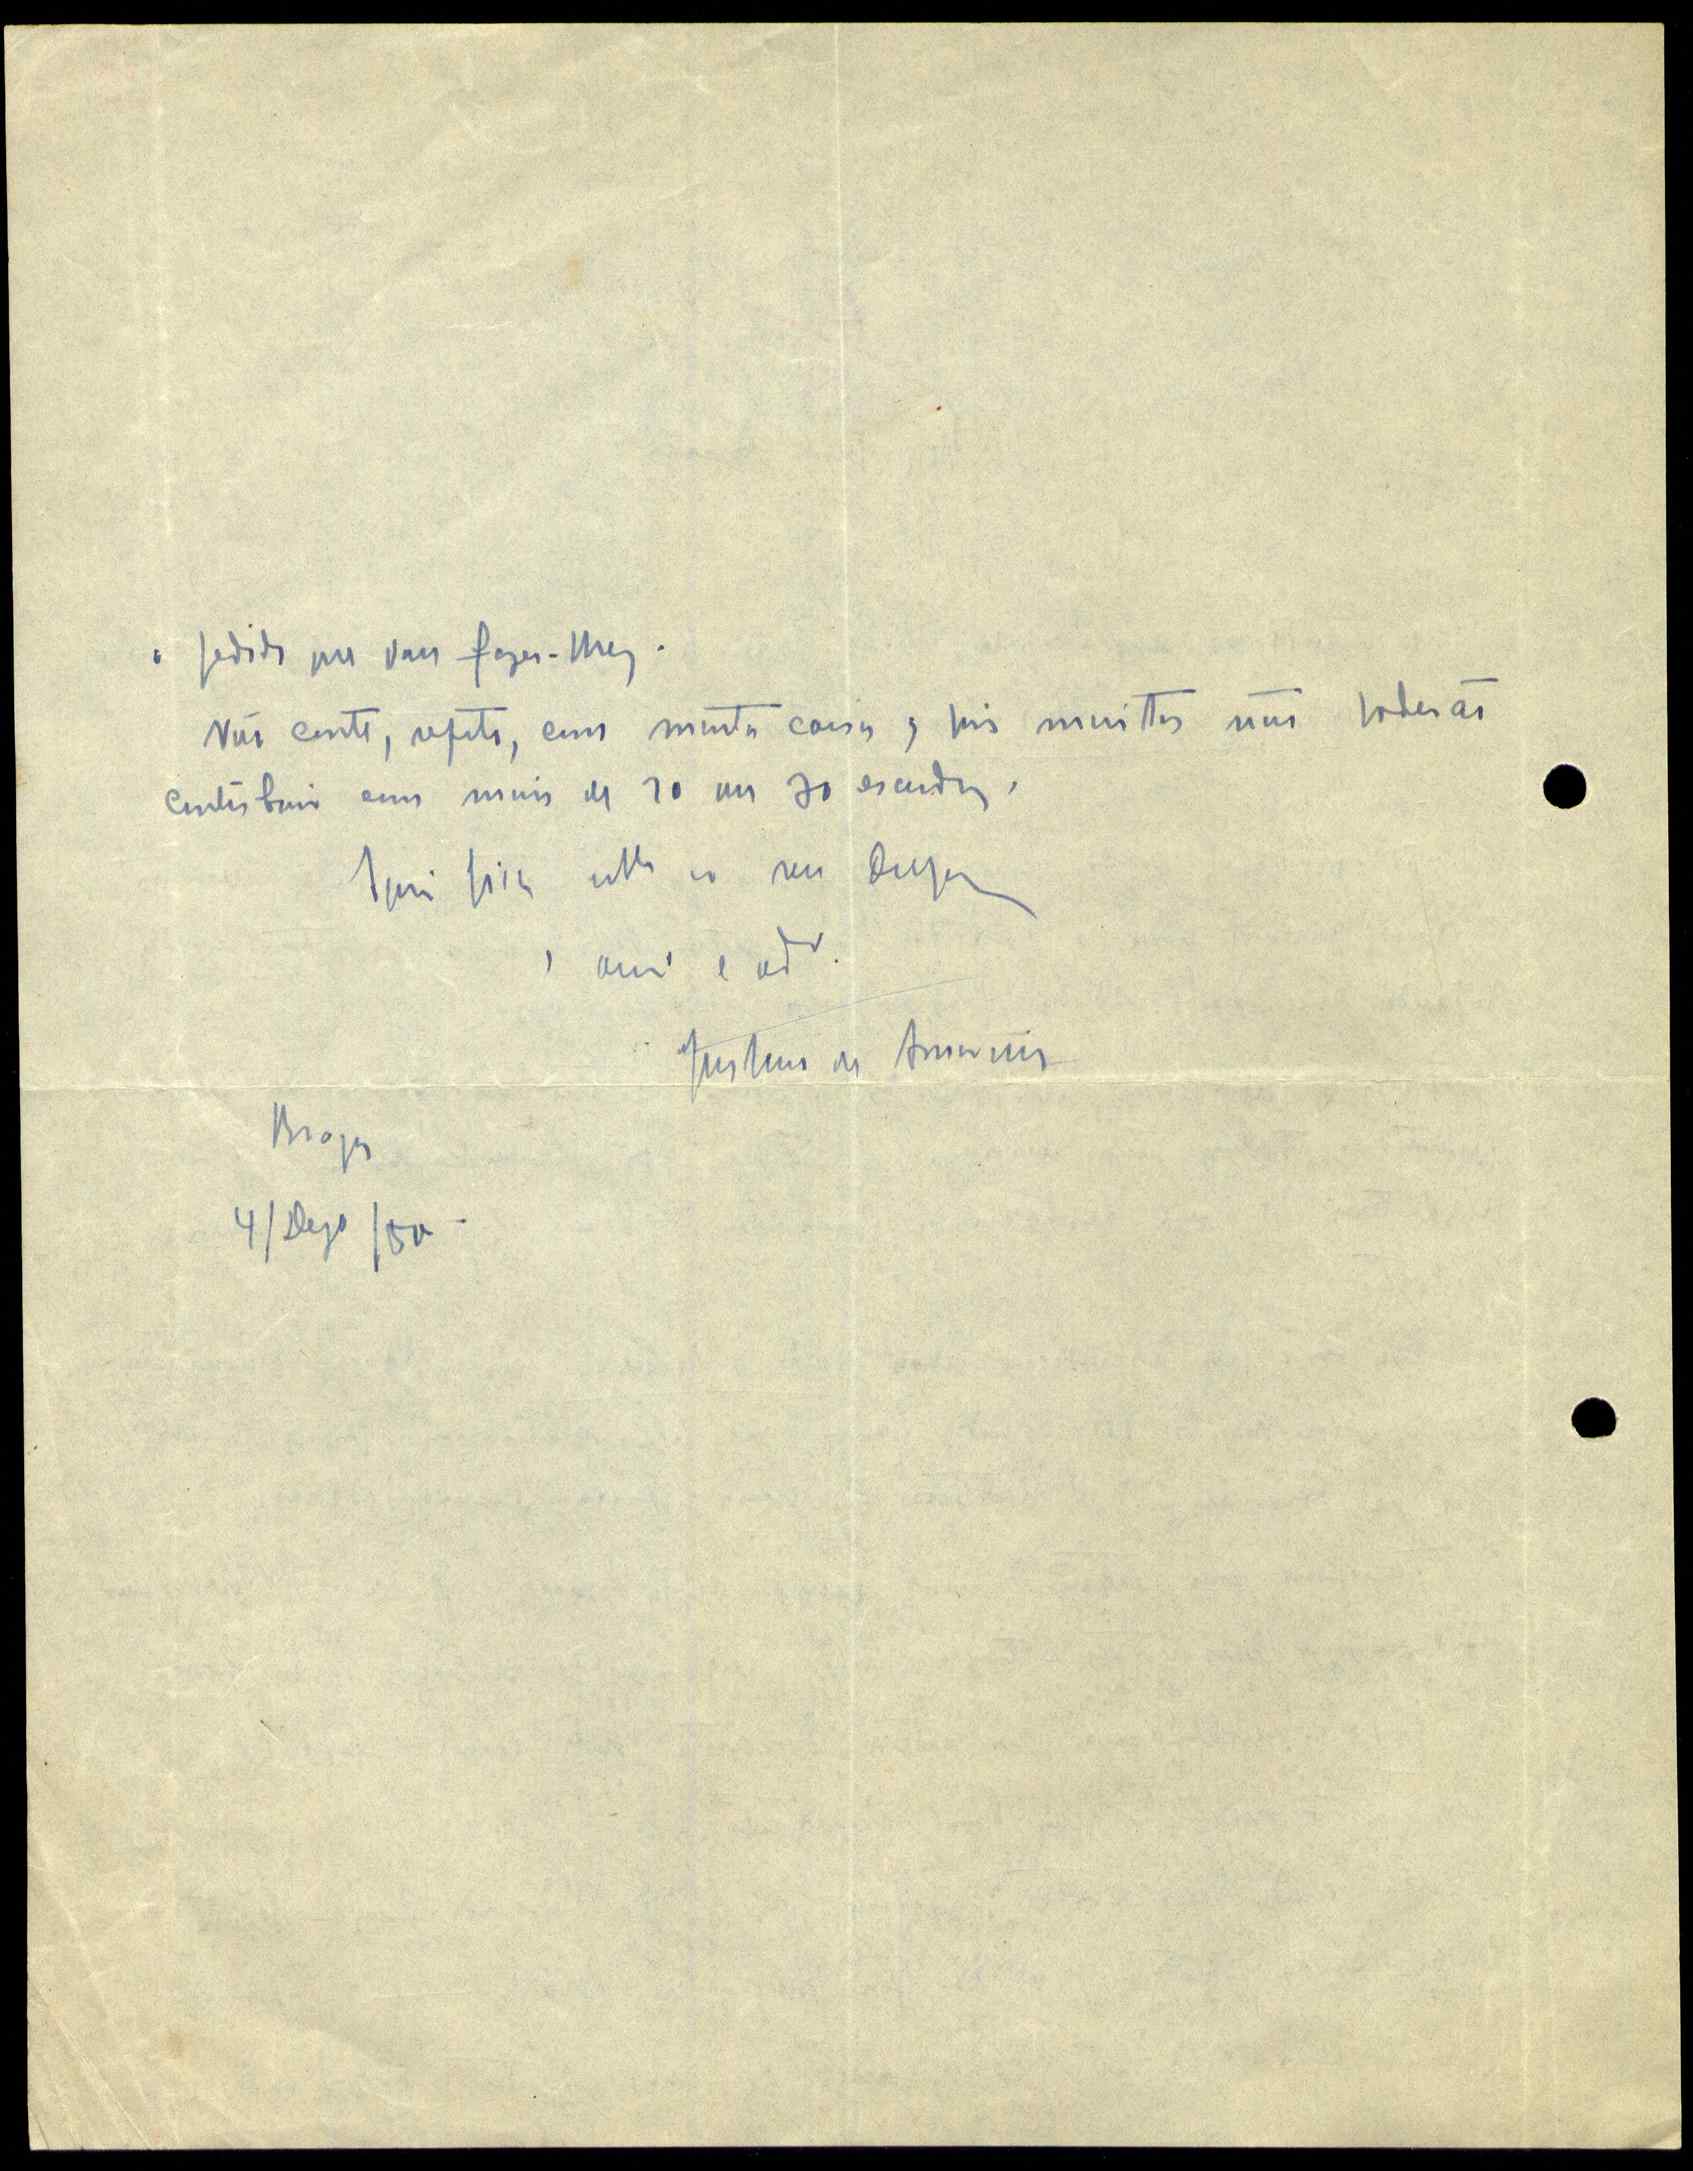 o pedido que vou fazer-lhes.
Não conte, repito, com muita coisa, pois muitos não poderão
contribuir com mais de 20 ou 30 escudos.
Aqui fica ao seu dispor
o am.º e ad.or
de Amorim
Braga
4/Dezº/50